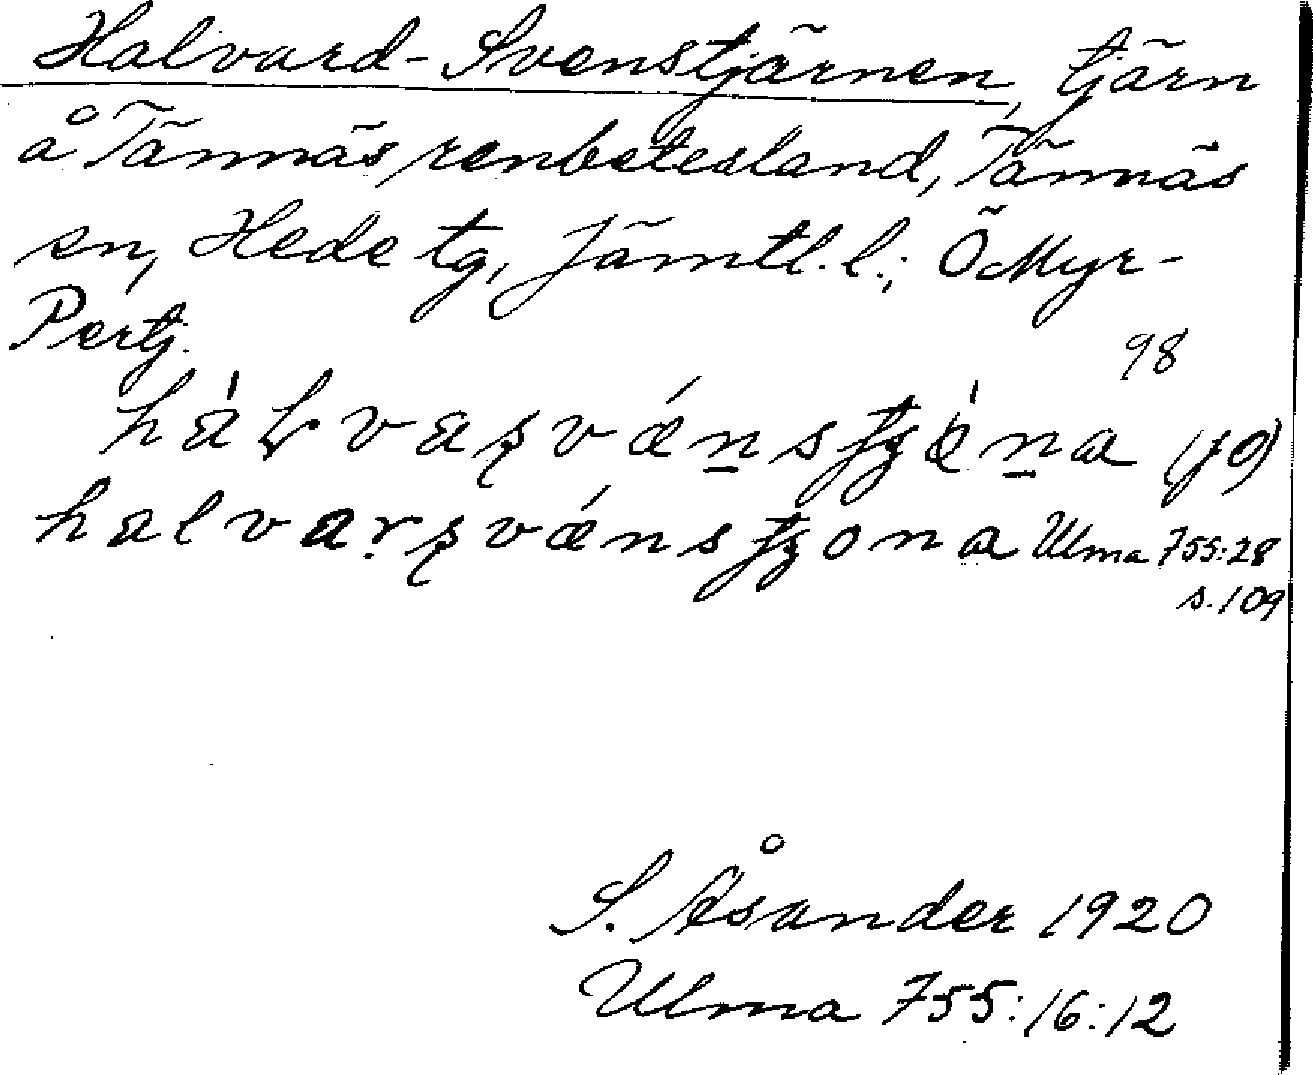 Halvard-Svenstjärnen, tjärn
å Tännäs renbetesland, Tännäs
sn, Hede tg, Jämtl. l.; Ö Myr-
Pertj.
98
Ulma 755:28
s. 109
S. Åsander 1920
Ulma 755:16:12